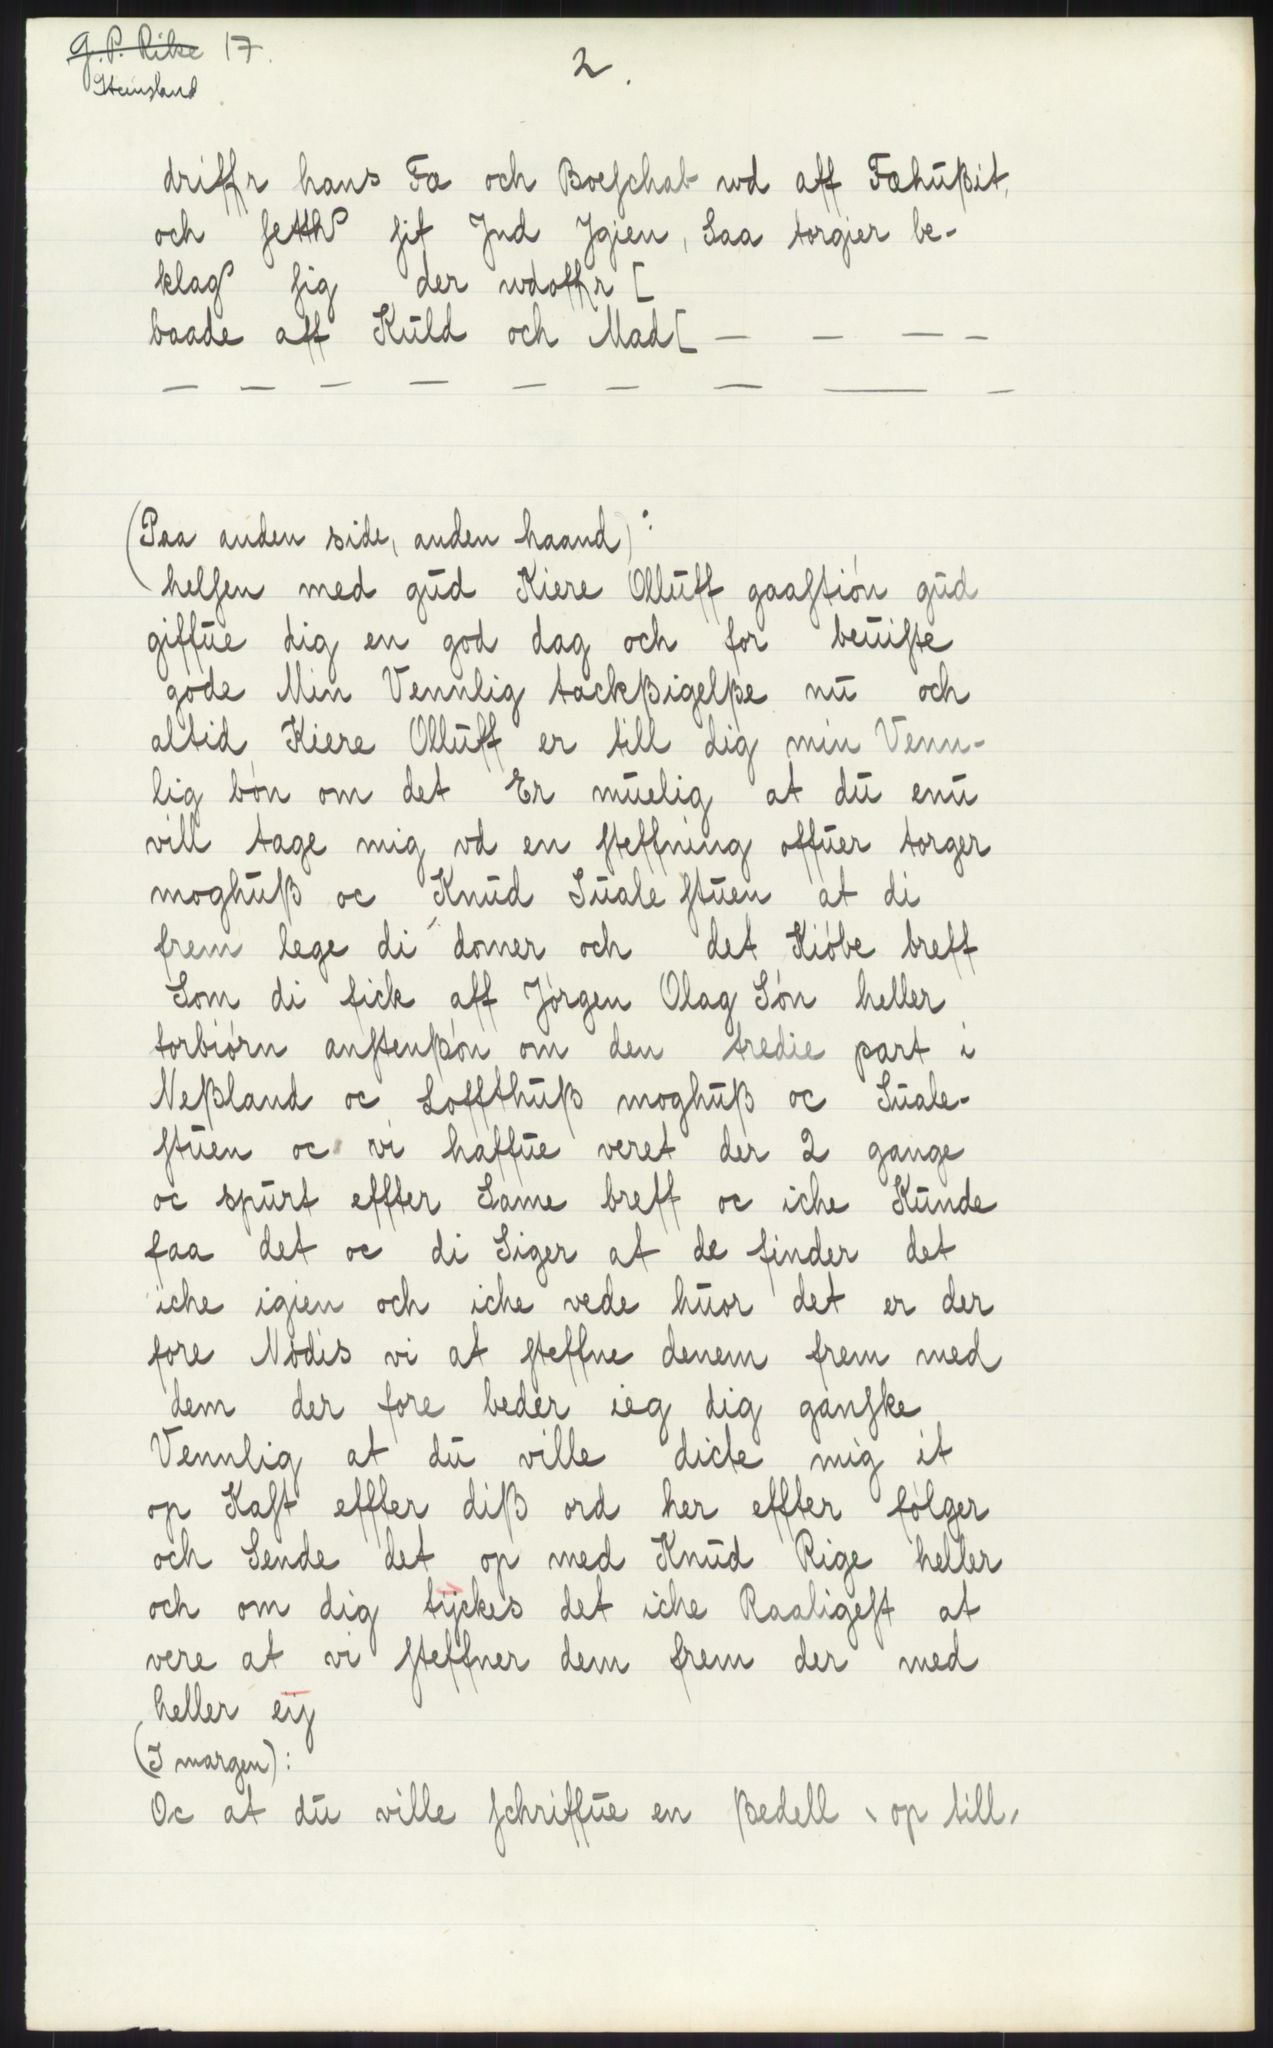 G. P. Rike 17.
Steinsland
2.
driffr hans Fæ och Boeschab wd aff Fæhußit,
och setthe sit Jnd Jgien, Saa torgier be-
klage sig der wdoffr [
baade aff Kuld och Mad [ — — — —
— — — — — — — — —
(Paa anden side, anden haand):
helsen med gud Kiere Olluff gaastión gud
giffue dig en god dag och for beuiste
gode Min Vennlig tackßigelße nu och
altid Kiere Olluff er till dig min Venn-
lig bón om det Er muelig at du enu
vill tage mig vd en steffning offuer torger
moghuß oc Knud Suale stuen at di
frem lege di domer och det Kióbe breff
Som di fick aff Jórgen Olag Són heller
torbiórn anstenßón om den tredie part i
Neßland oc Loffthuß moghuß oc Suale-
stuen oc vi haffue veret der 2 gange
oc spurt effter Same breff oc iche Kunde
faa det oc di Siger at de finder det
iche igien och iche vede huor det er der
fore Nódis vi at steffne denem frem med
dem der fore beder ieg dig ganske
Vennlig at du ville dicte mig it
op Kast effter diß ord her effter fólger
och Sende det op med Knud Rige heller
och om dig tÿckes det iche Raaligest at
vere at vi steffner dem frem der med
heller eÿ
(I margen):
Oc at du ville schriffue en ßedell op till,